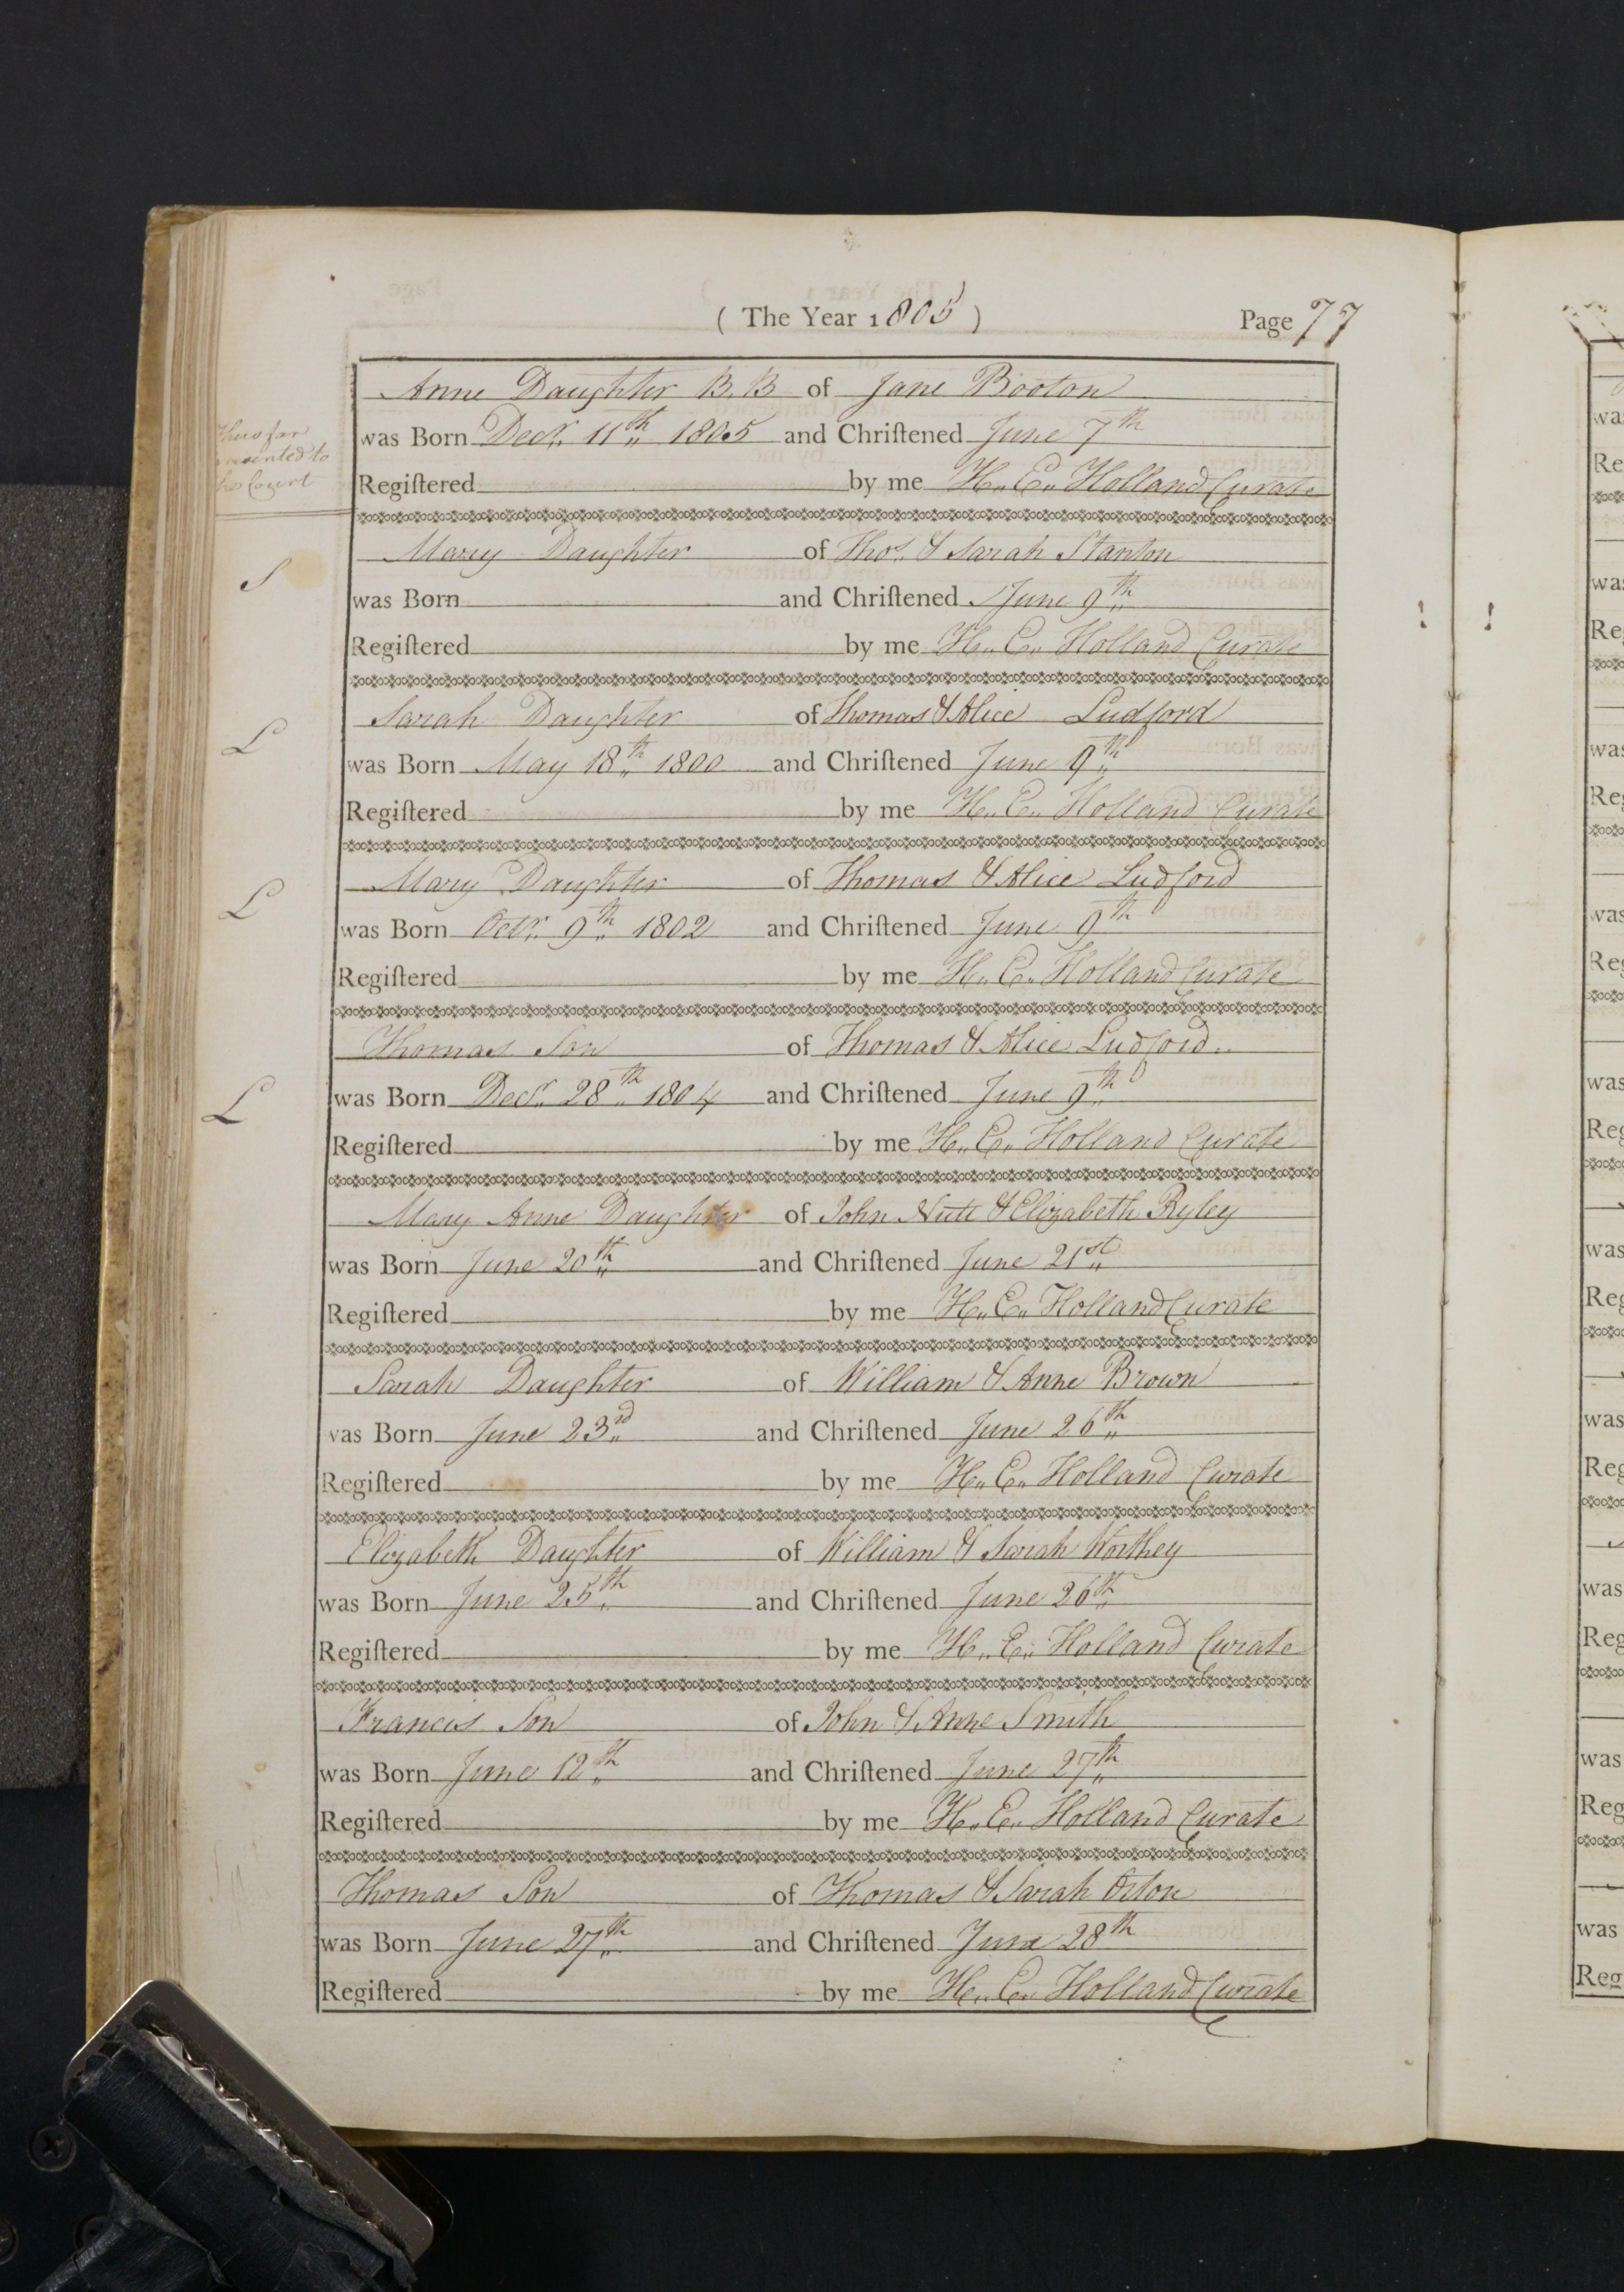 ( The Year 1805 )
Page 77
Anne Daughter B.B of Jane Booton
Thus far
presented to
the Court
was Born Decr. 11th 1805 and Chriſtened June 7th
Regiſtered by me H. E. Holland Curate
Mary Daughter of Thos. & Sarah Stanton
S
was Born and Chriſtened June 9th
Regiſtered by me H. E. Holland Curate
Sarah Daughter of Thomas & Alice Ludford
L
was Born May 18th 1800 and Chriſtened June 9th
Regiſtered by me H. E. Holland Curate
Mary Daughter of Thomas & Alice Ludford
L
was Born Octr. 9th 1802 and Chriſtened June 9th
Regiſtered by me H. E. Holland Curate
Thomas Son of Thomas & Alice Ludford
L
was Born Decr. 28th 1804 and Chriſtened June 9th
Regiſtered by me H. E. Holland Curate
Mary Anne Daughter of John & Elizabeth Ryley
was Born June 20th and Chriſtened June 21st
Regiſtered by me H. E. Holland Curate
Sarah Daughter of William & Anne Brown
was Born June 23rd and Chriſtened June 26th
Regiſtered by me H. E. Holland Curate
Elizabeth Daughter of William & Sarah Worthey
was Born June 25th and Chriſtened June 26th
Regiſtered by me H. E. Holland Curate
Francis Son of John & Anne Smith
was Born June 12th and Chriſtened June 27th
Regiſtered by me H. E. Holland Curate
Thomas Son of Thomas & Sarah Orton
was Born June 27th and Chriſtened June 28th
Regiſtered by me H. E. Holland Curate